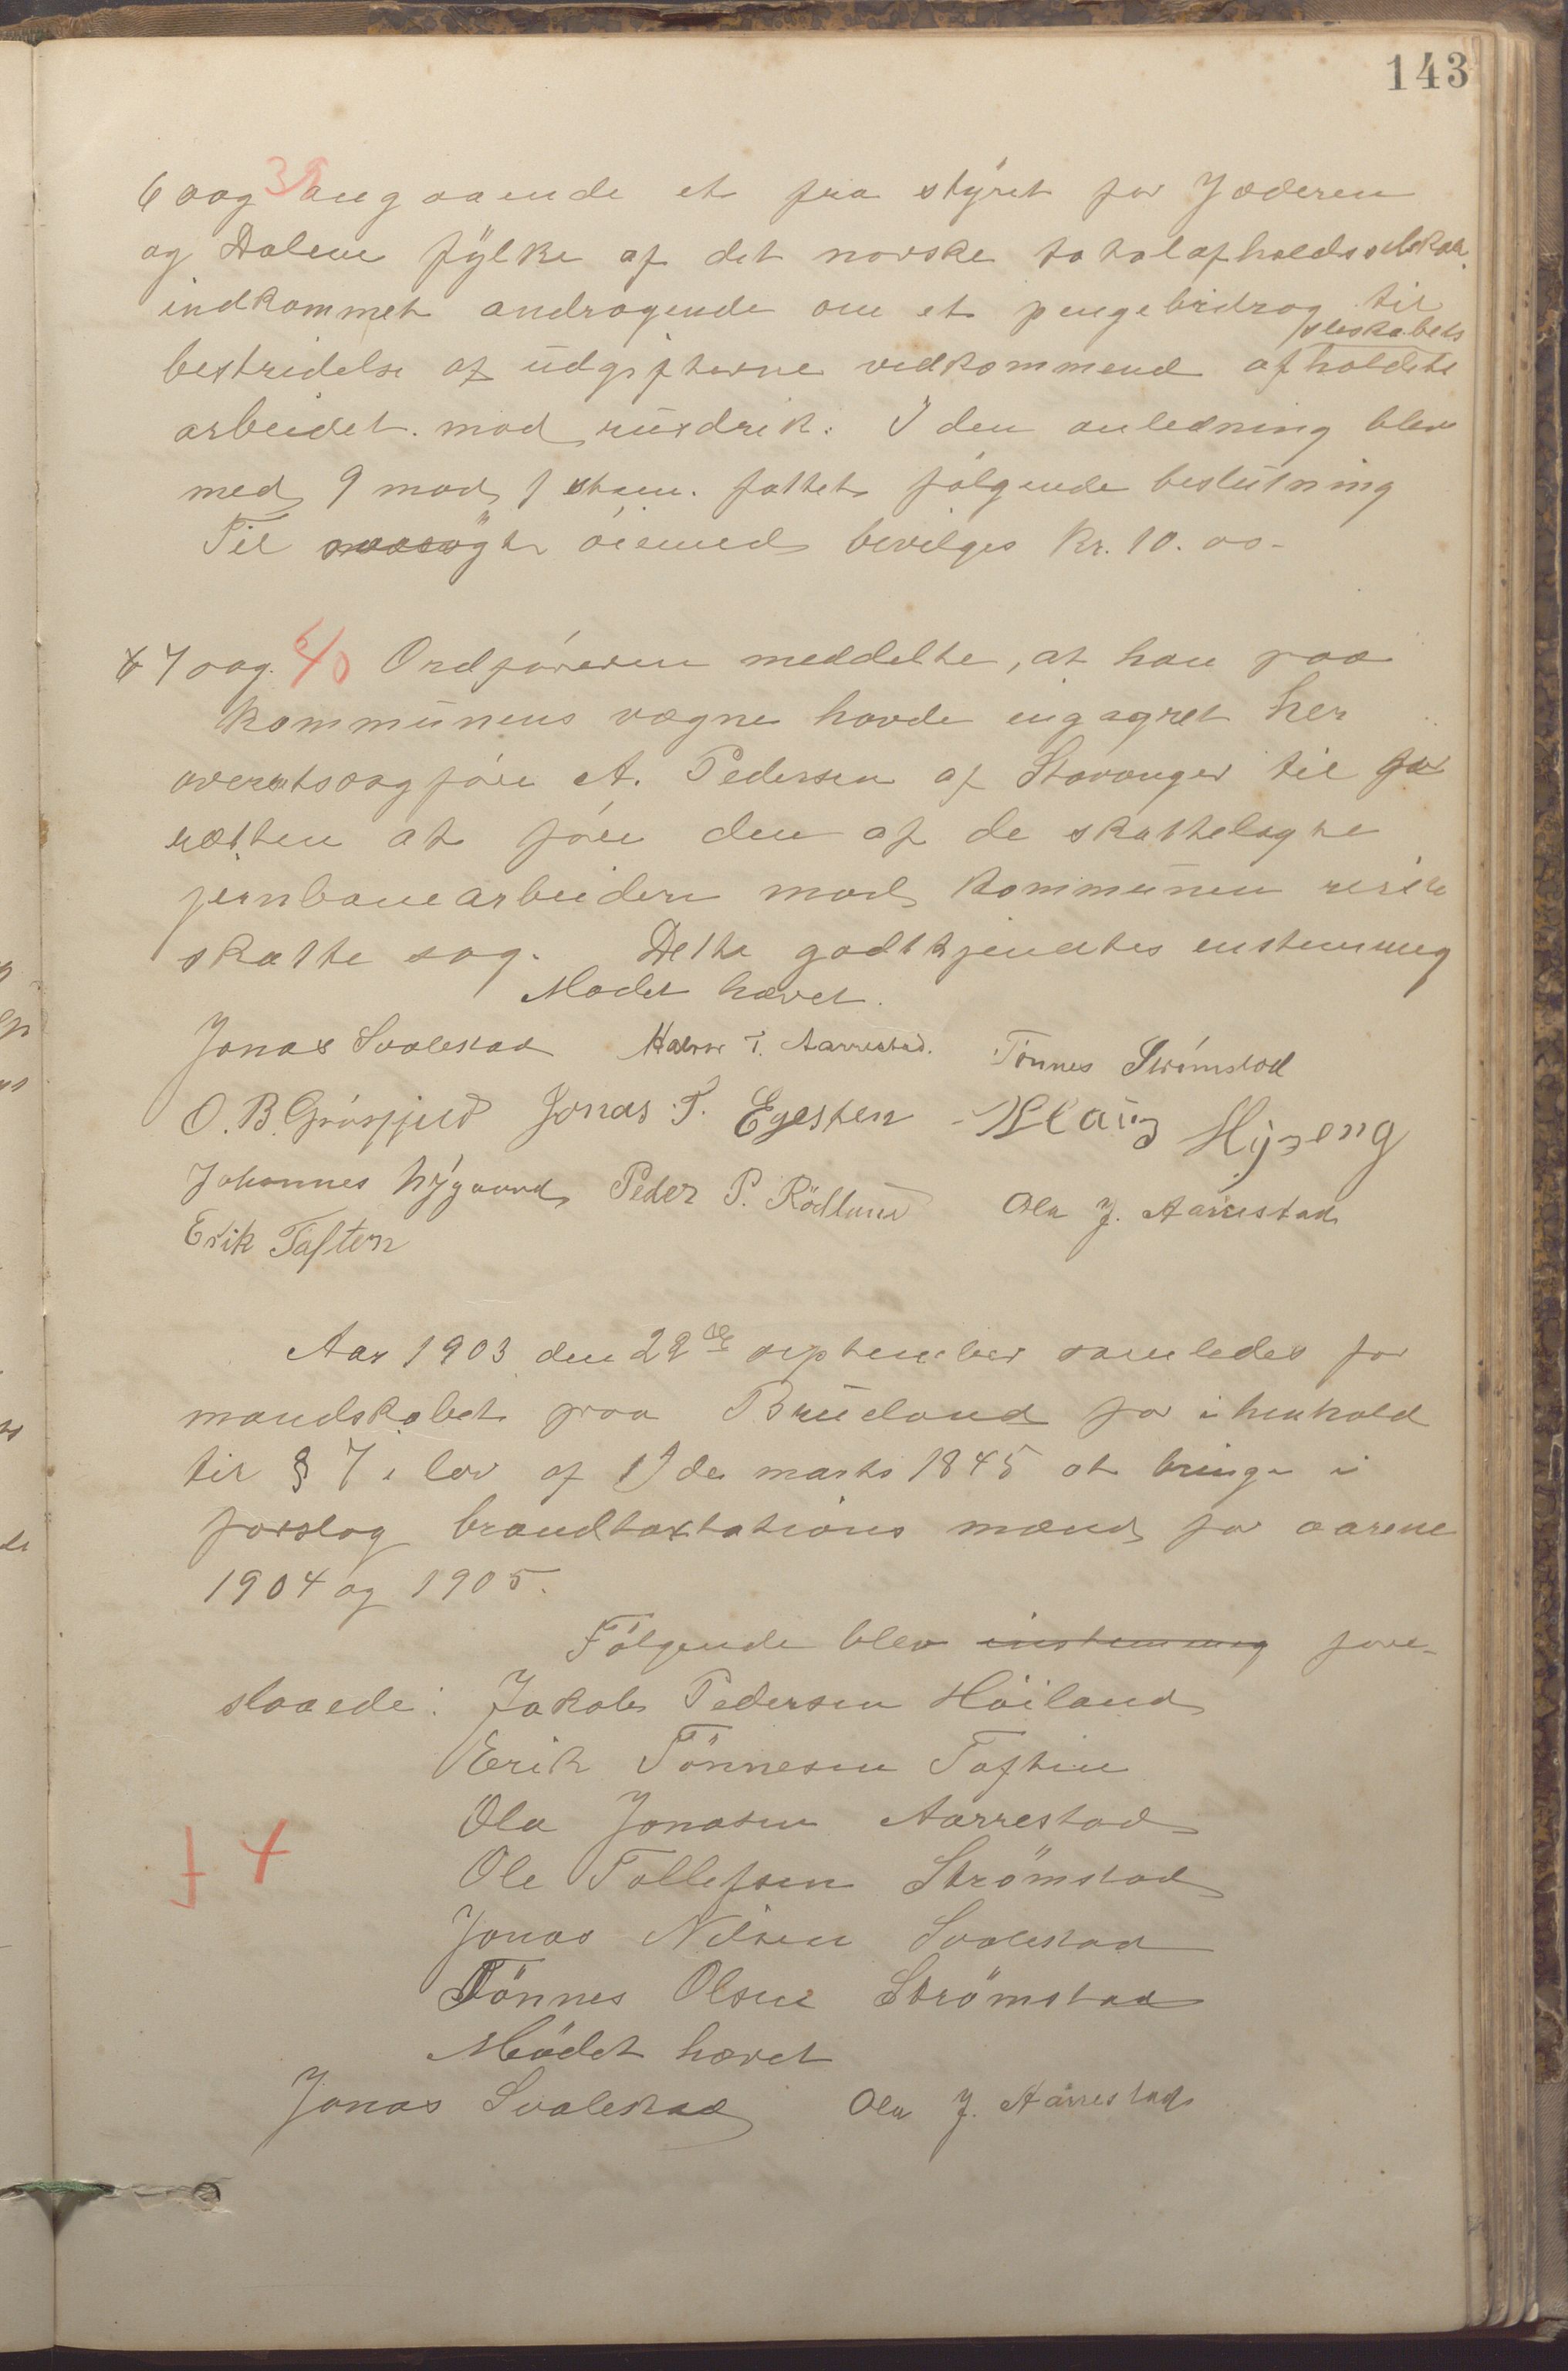 143
6 sag 39 angaaende et fra styret for Jæderen
og Dalene fylke af det norske totalafholdsselskab
indkommet andragende om et pengebidrag til
selskabets
bestridelse af udgifterne vedkommend afholdets
arbeidet mod rusdrik. I den anledning blev
med 9 mod 1 stem. fattet følgende beslutning
Til øiemed bevilges kr. 10.00-
7 sag. 40 Ordføreren meddelte, at han paa
kommunens vægne havde engagret her
overretssagføre A. Pedersen af Stavanger til for
retten at føre den af de skattelagte
jernbanearbeidere mod kommunen reiste
skatte sag. Dette godtkjendtes enstemmig
Mødet hævet.
Jonas Svalestad Halvor T. Aarrestad. Tönnes Strömstad
O. B. Grøsfjeld Jonas T. Egesten Klaus Hyseng
Johannes Nygaard Peder P. Rödland Ola J. Aarrestad
Erik Taften
Aar 1903 den 22de september samledes for
mandskabet paa Brueland for i henhold
til § 7 i lov af 19de marts 1845 at bringe i
forslag brandtaxtations mænd for aarene
1904 og 1905.
Følgende blev enstemmig fore-
slaaede: Jakob Pedersen Höiland
Erik Tönnesen Taften
Ola Jonasen Aarrestad
Ole Tollefsen Strömstad
Jonas Nilsen Svalestad
Tönnes Olsen Strömstad
Mödet hævet
Jonas Svalestad Ola J. Aarrestad